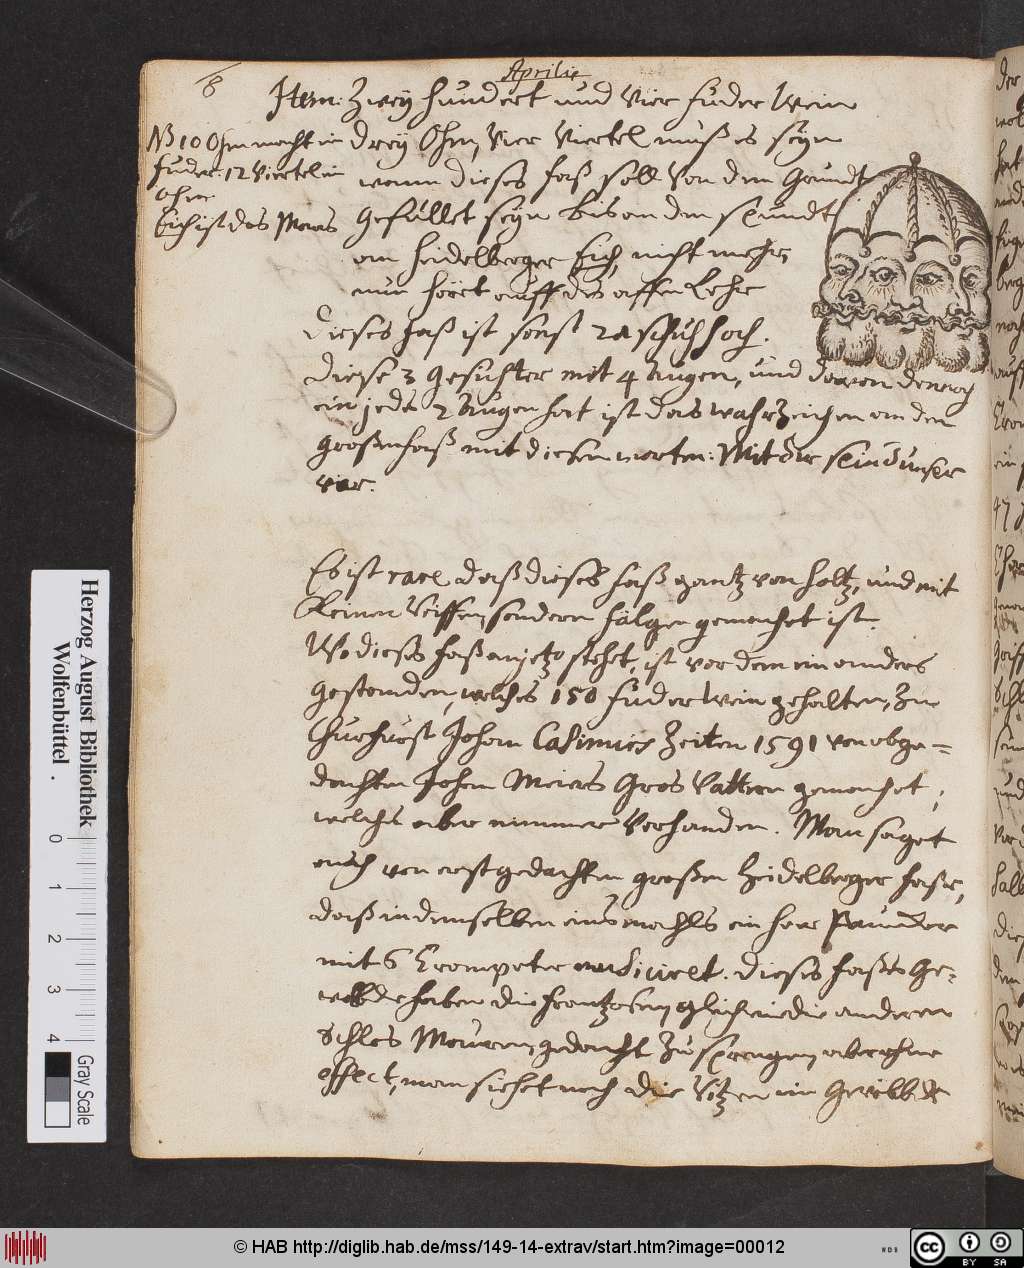 8
Aprilis
Item: Zwey hundert und Vier fuder Wein
drey Ohm, Vier Viertel muß es seyn
wenn dieses faß soll von dem Grundt
gefüllet seyn bis an den spundt
am Heidelberger Eich, nicht mehr,
nun höret auff des affen Lehr
NB 10 Ohm macht ein
fuder. 12 Viertel ein
Ohm
Eich ist das Maas
Dieses Faß ist sonst 24 schuh hoch.
Diese 3 Gesichter mit 4 Augen, und davon dennoch
ein jedes 2 Augen hat ist das wahrzeichen an dem
großen faß mit diesen worten: Mit dir sein unser
vier.
Es ist rar daß dieses faß gantz von holtz, und mit
keinen Reiffen, sondern fälgen gemachet ist.
Wo dieses faß anjetzo stehet, ist vor dem ein anders
gestanden, welches 150 fuder Wein gehalten, Zu
Churfürst Johan Casimirs Zeiten 1591 von obge=
dachten Johan Meiers Gros Vattern gemachet,
welches aber nimmer Vorhanden. Man saget
auch von erst gedachten großen Heidelberger faße,
daß in demselben einsmahls ein heer Paucker
mit 6 Trompeter. Dieses faßes Ge=
welbde haben die frantzosen, gleich wie die anderen
Schlos Mauren, gedacht zu sprengen, aber ohne
effect, man siehet noch die Ritzen im Gewölbde
Herzog August Bibliothek
Wolfenbüttel
0 1 2 3 4
Gray Scale
© HAB http://diglib.hab.de/mss/149-14-extrav/start.htm?image=00012
cc BY SA